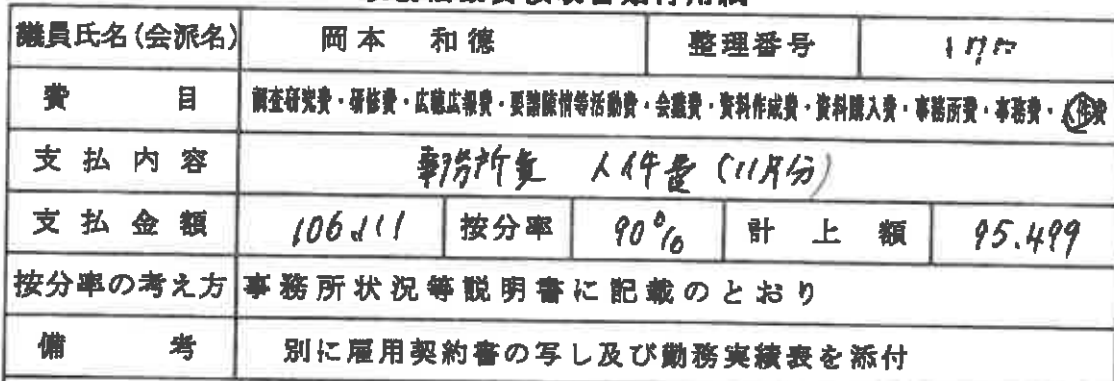 議員氏名(会派名) 岡本 和徳 整理番号
費目 調査研究費・研修費・広聴広報費・要請陳情等活動費・会議費・資料作成費・資料購入費・事務所費・事務費・人件費
支払内容 事務所費 人件費(11月分)
支払金額 106,111 按分率 90% 計上額 95.499
按分率の考え方 事務所状況等説明書に記載のとおり
備考 別に雇用契約書の写し及び勤務実績表を添付